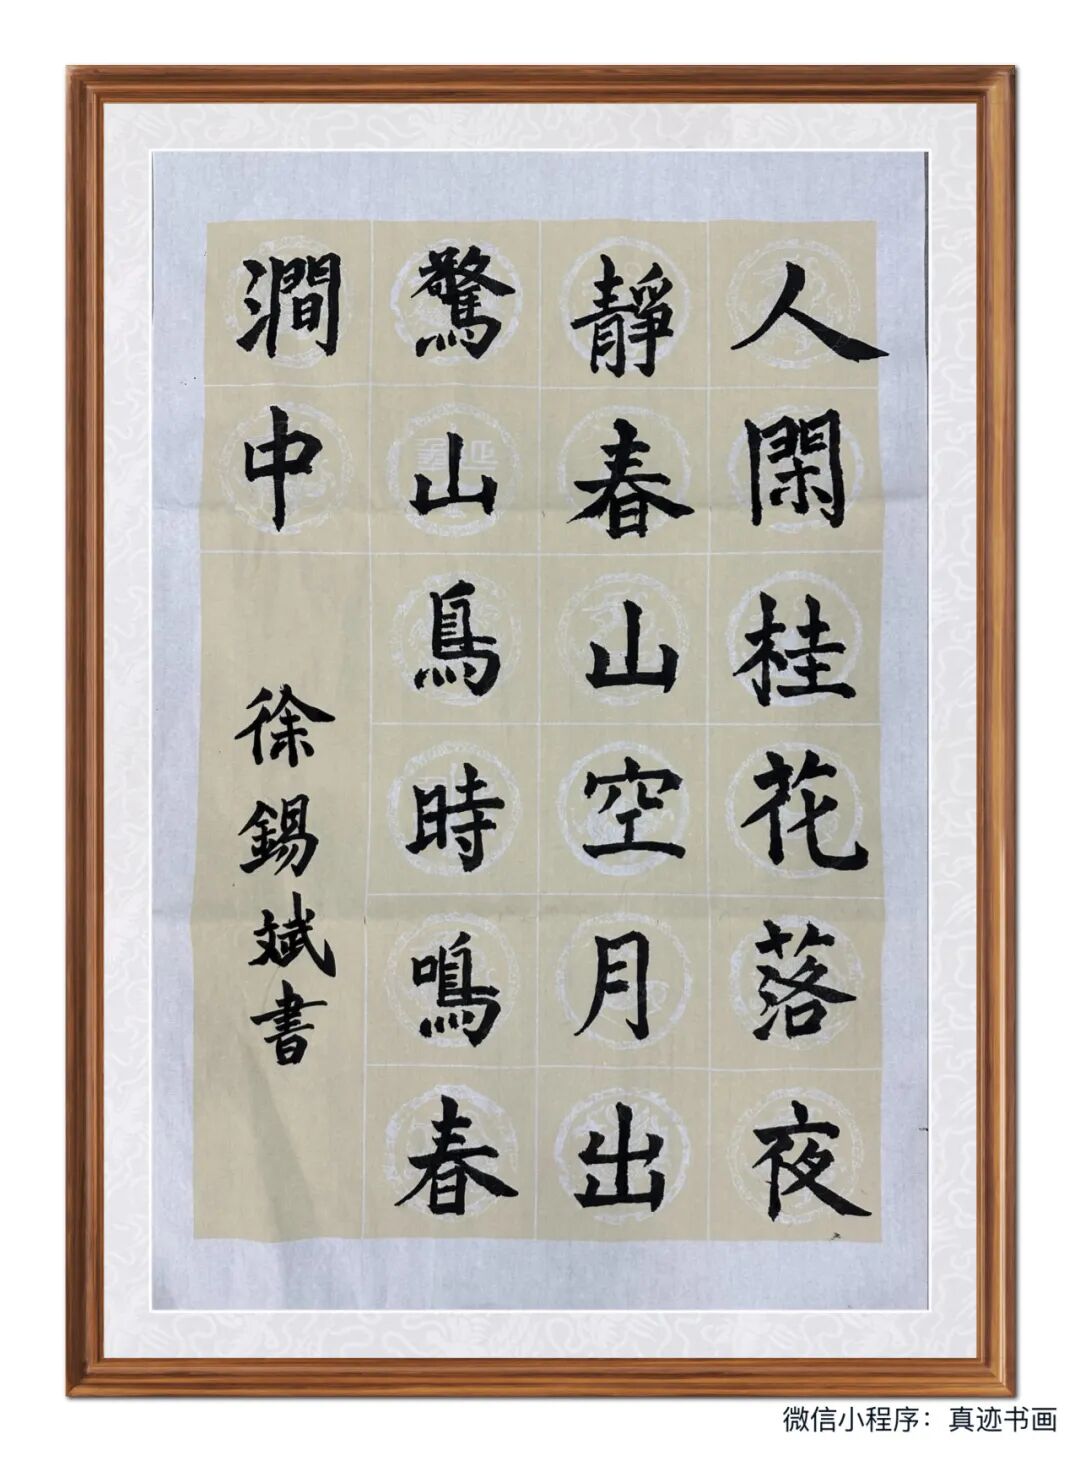 人閑桂花落夜
靜春山空月出
驚山鳥時鳴春
澗中
徐錫斌書
微信小程序：真迹书画